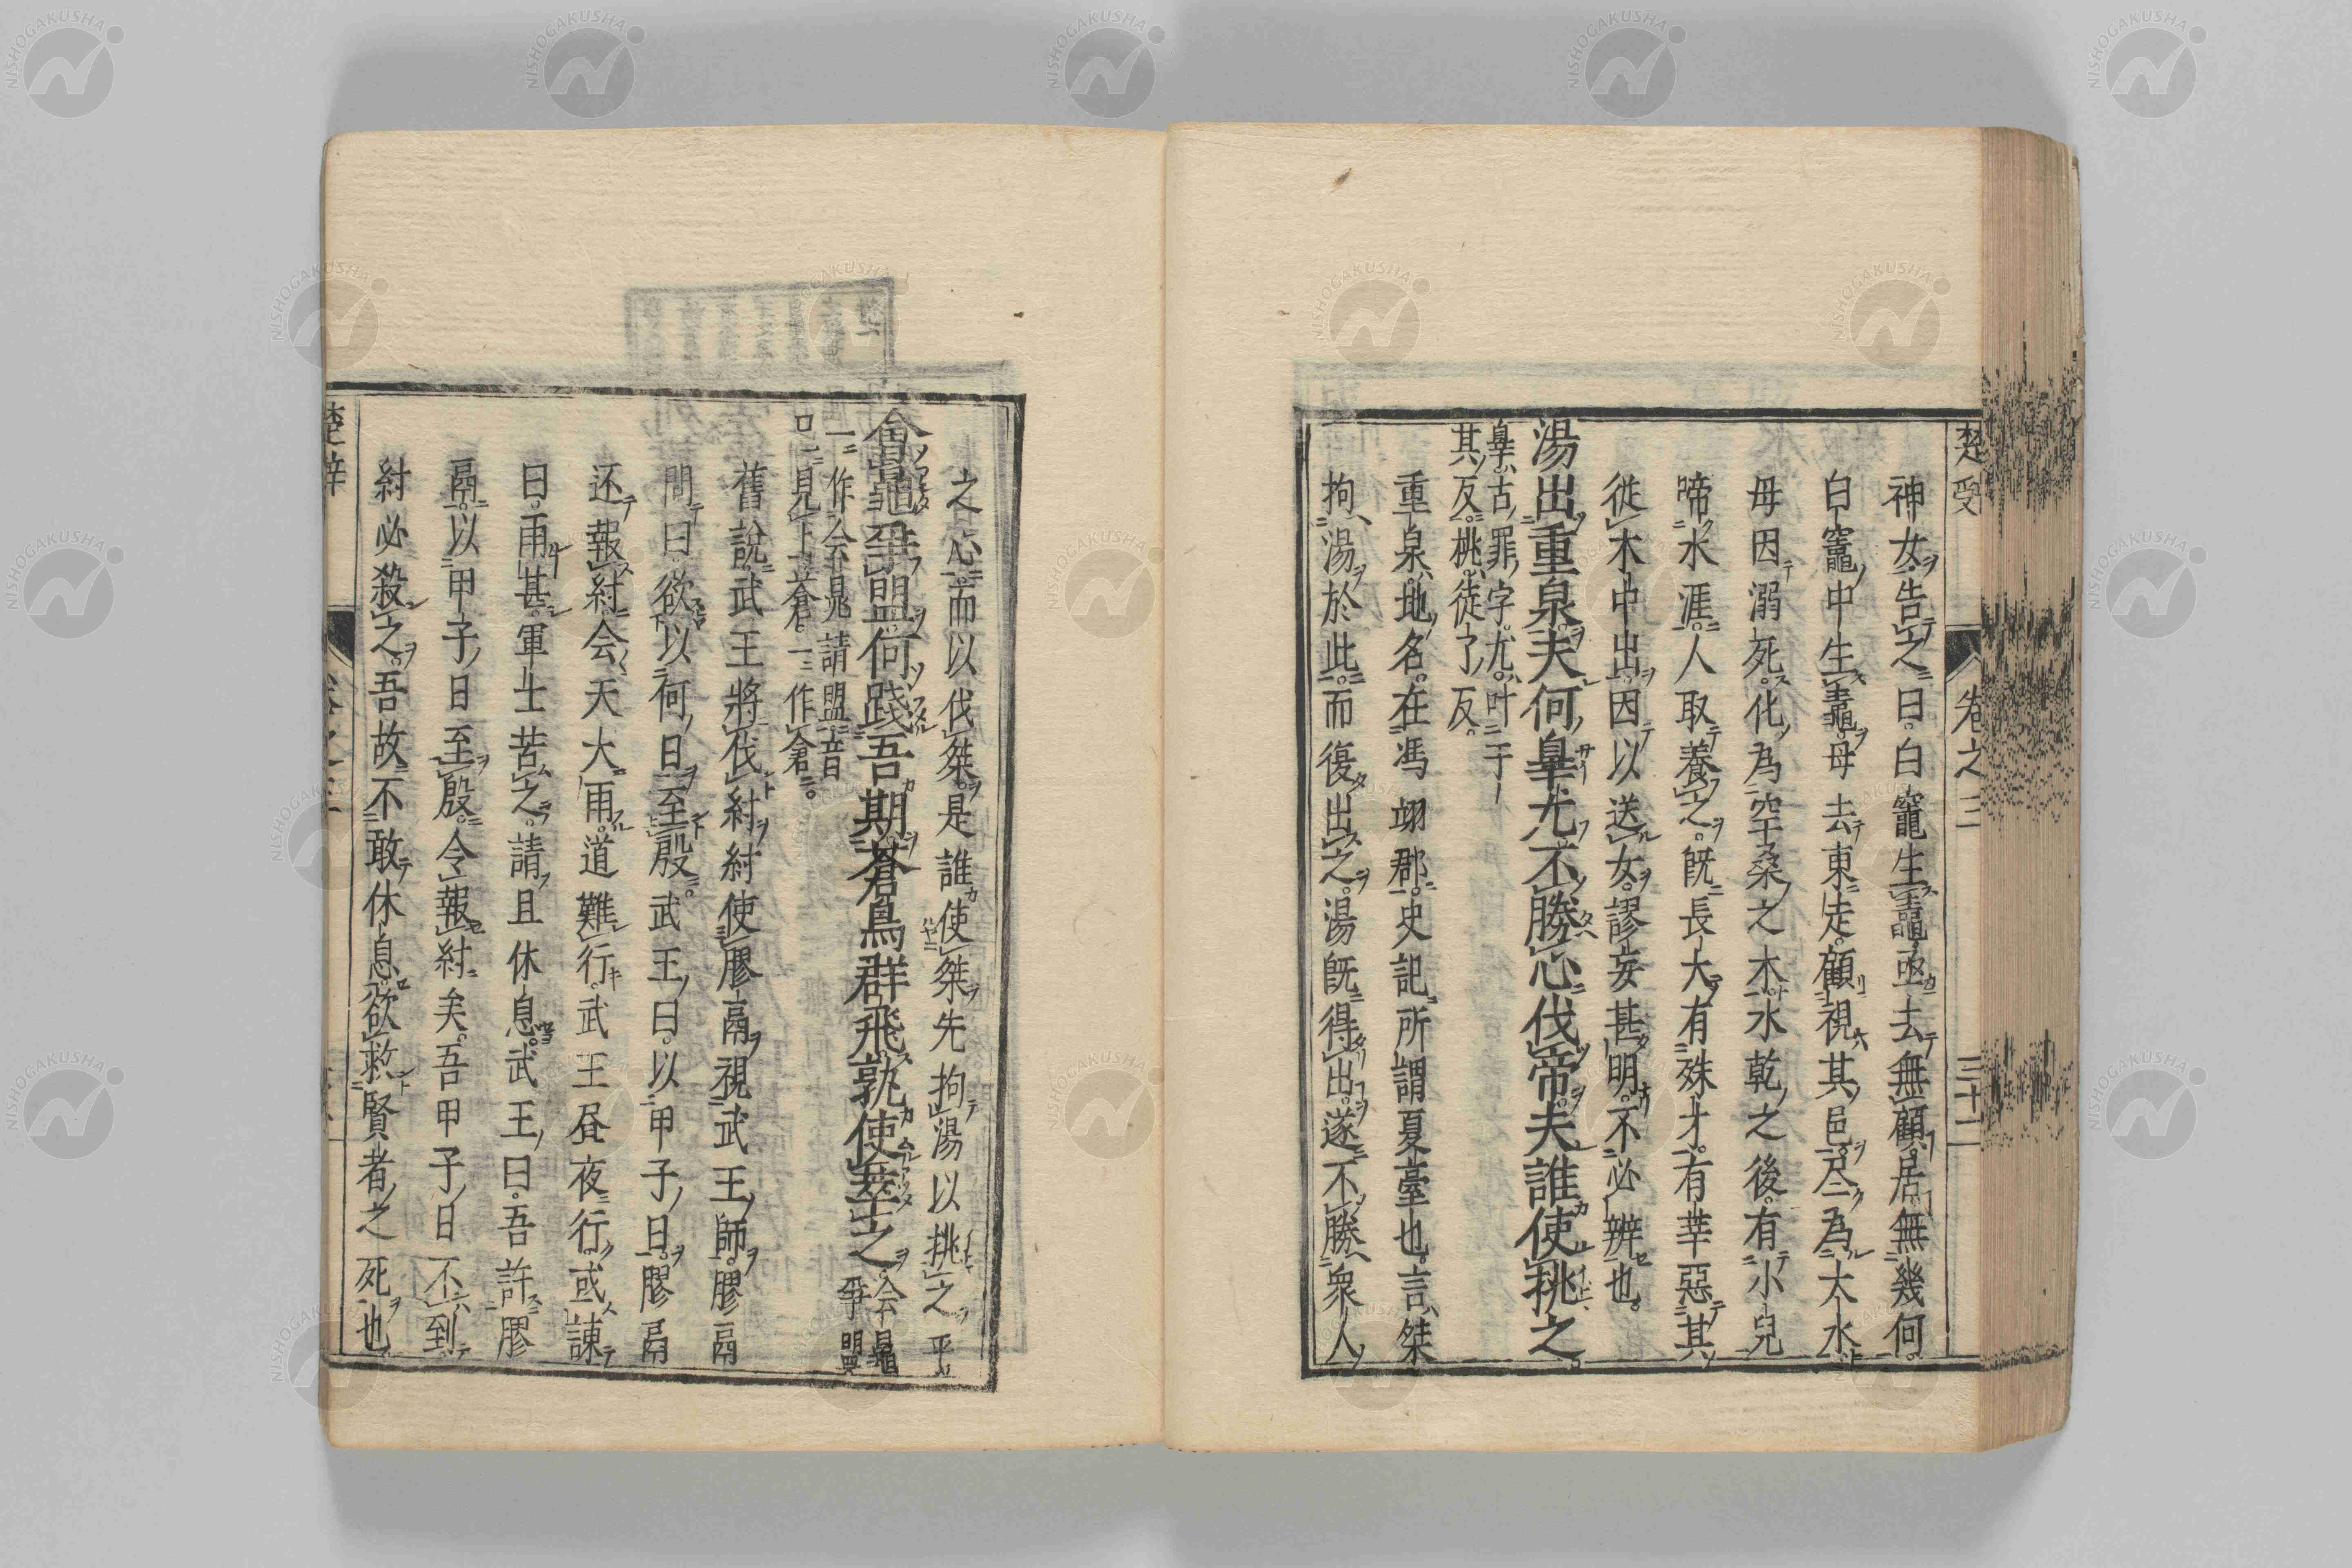 神女告之曰白竈生鼃亟去無顧居無幾何
白竈中生鼃母去東走顧視其邑尽為大水
母因溺死化為空桑之木水乾之後有小兒
啼水涯人取養之既長大有殊才有莘惡其
従木中出因以送女謬妄甚明不必辨也
湯出重泉夫何辠尤不勝心伐帝夫誰使挑之
辠古罪字尤叶于
其反挑徒了反
重泉地名在馮翊郡史記所謂夏臺也言桀
拘湯於此而復出之湯既得出遂不勝衆人
之心而以伐桀是誰使桀先拘湯以挑之乎
會鼂爭盟何踐吾期蒼鳥群飛孰使萃之会鼂
爭明
一作会晁請盟音
一見上蒼一作倉
舊說武王將伐紂紂使膠鬲視武王師膠鬲
問曰欲以何日至殷武王曰以甲子日膠鬲
还報紂会天大雨道難行武王昼夜行或諌
曰雨甚軍士苦之請且休息武王曰吾許膠
鬲以甲子日至殷令報紂矣吾甲子日不到
紂必殺之吾故不敢休息欲救賢者之死也
卷之三
三十二
NISHOGAKUSHA